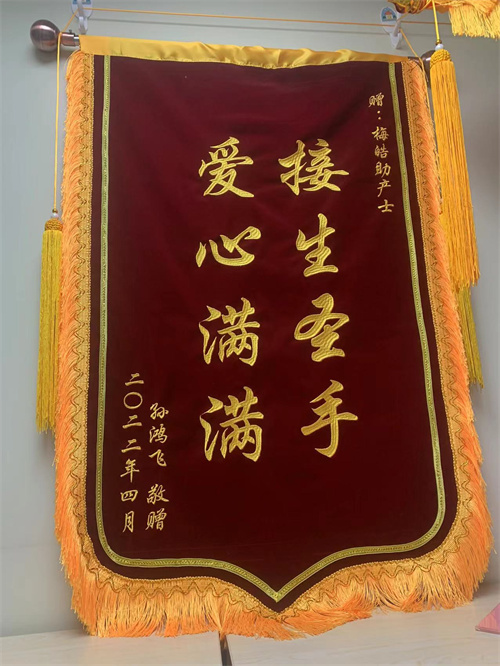 赠：梅皓助产士
接生圣手
爱心满满
孙鸿飞 敬赠
二〇二二年四月